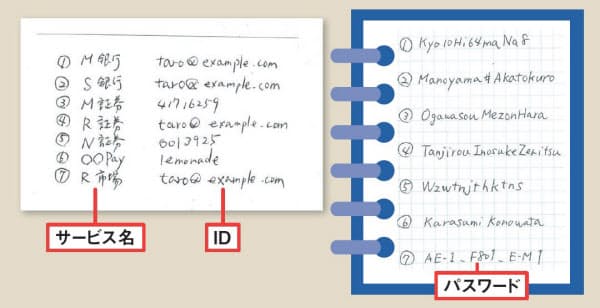 ① M 銀行 taro@example.com
② S 銀行 taro@example.com
③ M 証券 41716259
④ R 証券 taro@example.com
⑤ N 証券 0013925
⑥ ○○Pay lemonade
⑦ R 市場 taro@example.com
サービス名 ID
① Kyo10Hi64maNa8
② Manoyama&Akatokuro
③ Ogawasou MezonHara
④ Tanjirou InosukeZenitsu
⑤ Wzwtnjthktns
⑥ Karasumi Konowata
⑦ AE-1_F801_E-M1
パスワード